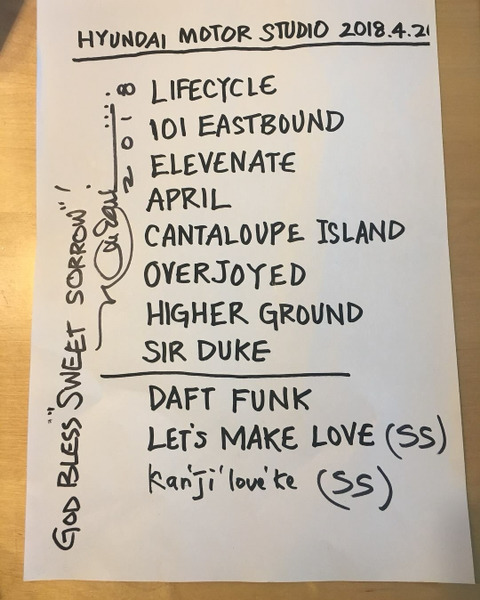 HYUNDAI MOTOR STUDIO 2018.4.2
LIFECYCLE
101 EASTBOUND
ELEVENATE
APRIL
CANTALOUPE ISLAND
OVERJOYED
HIGHER GROUND
SIR DUKE
DAFT FUNK
LET'S MAKE LOVE (SS)
kan'ji'love'ke (SS)
GOD BLESS "SWEET SORROW"!
2018